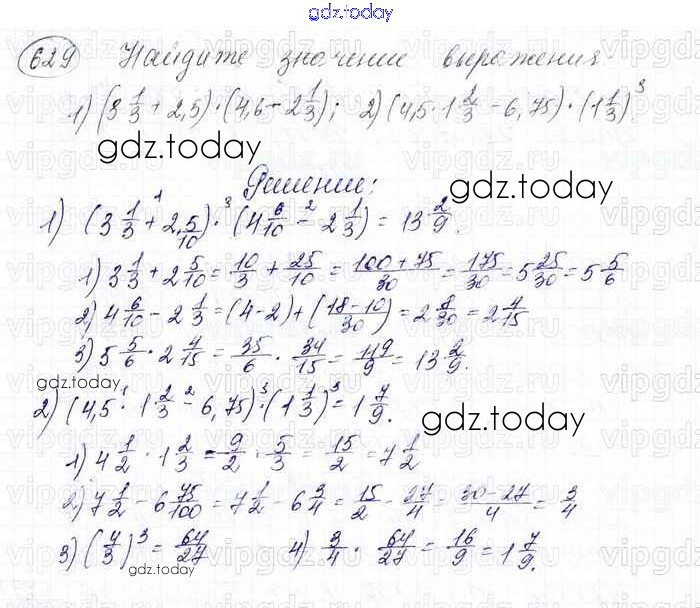 gdz.today
629 Найдите значение выражения
1) (3 1/3 + 2,5) · (4,6 - 2 1/3); 2) (4,5 · 1 2/3 - 6,75) · (1 1/3)³
gdz.today
gdz.today
Решение:
1) (3 1/3 +¹ 2 5/10) ·³ (4 6/10 -² 2 1/3) = 13 2/9.
1) 3 1/3 + 2 5/10 = 10/3 + 25/10 = (100 + 75)/30 = 175/30 = 5 25/30 = 5 5/6
2) 4 6/10 - 2 1/3 = (4-2) + ((18-10)/30) = 2 8/30 = 2 4/15
3) 5 5/6 · 2 4/15 = 35/6 · 34/15 = 119/9 = 13 2/9.
gdz.today
2) (4,5 ·¹ 1 2/3 -² 6,75) ·³ (1 1/3)³ = 1 7/9.
gdz.today
1) 4 1/2 · 1 2/3 = 9/2 · 5/3 = 15/2 = 7 1/2
2) 7 1/2 - 6 75/100 = 7 1/2 - 6 3/4 = 15/2 - 27/4 = (30-27)/4 = 3/4
3) (4/3)³ = 64/27 4) 3/4 · 64/27 = 16/9 = 1 7/9.
gdz.today